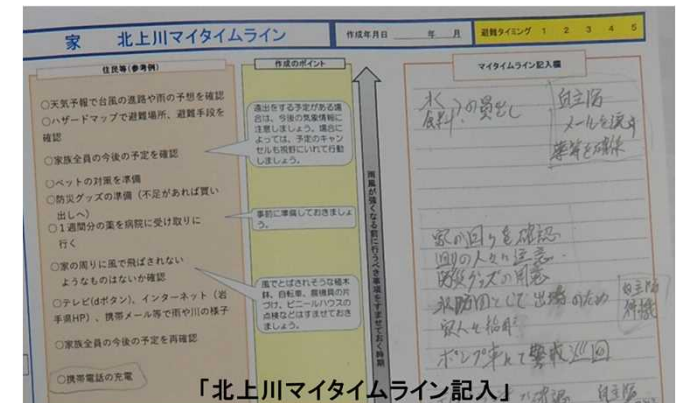 家 北上川マイタイムライン
作成年月日 年 月
避難タイミング 1 2 3 4 5
住民等(参考例)
○天気予報で台風の進路や雨の予想を確認
○ハザードマップで避難場所、避難手段を
確認
○家族全員の今後の予定を確認
○ペットの対策を準備
○防災グッズの準備(不足があれば買い
出しへ)
○1週間分の薬を病院に受け取りに
行く
○家の周りに風で飛ばされない
ようなものはないか確認
○テレビ(dボタン)、インターネット(岩
手県HP)、携帯メール等で雨や川の様子
○家族全員の今後の予定を再確認
○携帯電話の充電
作成のポイント
遠出をする予定がある場
合は、今後の気象情報に
注意しましょう。場合に
よっては、予定のキャン
セルも視野にいれて行動
しましょう。
事前に準備しておきましょ
う。
風でとばされそうな植木
鉢、自転車、農機具の片
づけ、ビニールハウスの
点検などはすませておき
ましょう。
雨風が強くなる前に行うべき事項をすませておく時期
マイタイムライン記入欄
水
食料
の買出し
自主防
メールを流す
家が回りを確認
回りの人々に注意
防災グッズの用意
消防団として出場のため
自主防
待機
ポンプ車にて警戒巡回
確認
自主防
「北上川マイタイムライン記入」